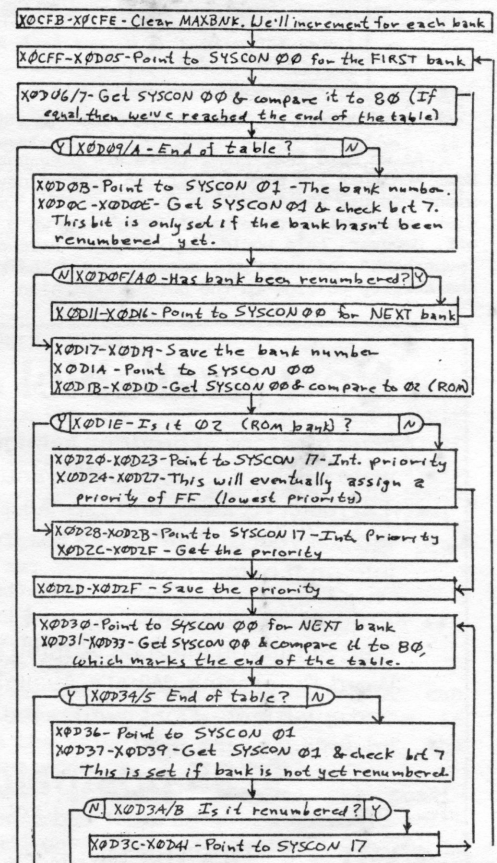 XØCFB-XØCFE-Clear MAXBNK. We'll increment for each bank
XØCFF-XØD05-Point to SYSCON ØØ for the FIRST bank
XØD06/7-Get SYSCON ØØ & compare it to 8Ø (If
equal, then we've reached the end of the table)
Y XØDØ9/A-End of table? N
XØDØB-Point to SYSCON Ø1-The bank number.
XØDØC-XØDØE-Get SYSCON Ø1 & check bit 7.
This bit is only set if the bank hasn't been
renumbered yet.
N XØDØF/AØ-Has bank been renumbered? Y
XØD11-XØD16-Point to SYSCON ØØ for NEXT bank
XØD17-XØD19-Save the bank number
XØD1A-Point to SYSCON ØØ
XØD1B-XØD1D-Get SYSCON ØØ & compare to Ø2 (ROM)
Y XØD1E-Is it Ø2 (ROM bank)? N
XØD2Ø-XØD23-Point to SYSCON 17-Int. priority
XØD24-XØD27-This will eventually assign a
priority of FF (lowest priority)
XØD28-XØD2B-Point to SYSCON 17-Int. Priority
XØD2C-XØD2F-Get the priority
XØD2D-XØD2F-Save the priority
XØD3Ø-Point to SYSCON ØØ for NEXT bank
XØD31-XØD33-Get SYSCON ØØ & compare it to 8Ø,
which marks the end of the table.
Y XØD34/5 End of table? N
XØD36-Point to SYSCON Ø1
XØD37-XØD39-Get SYSCON Ø1 & check bit 7
This is set if bank is not yet renumbered
N XØD3A/B Is it renumbered? Y
XØD3C-XØD41-Point to SYSCON 17